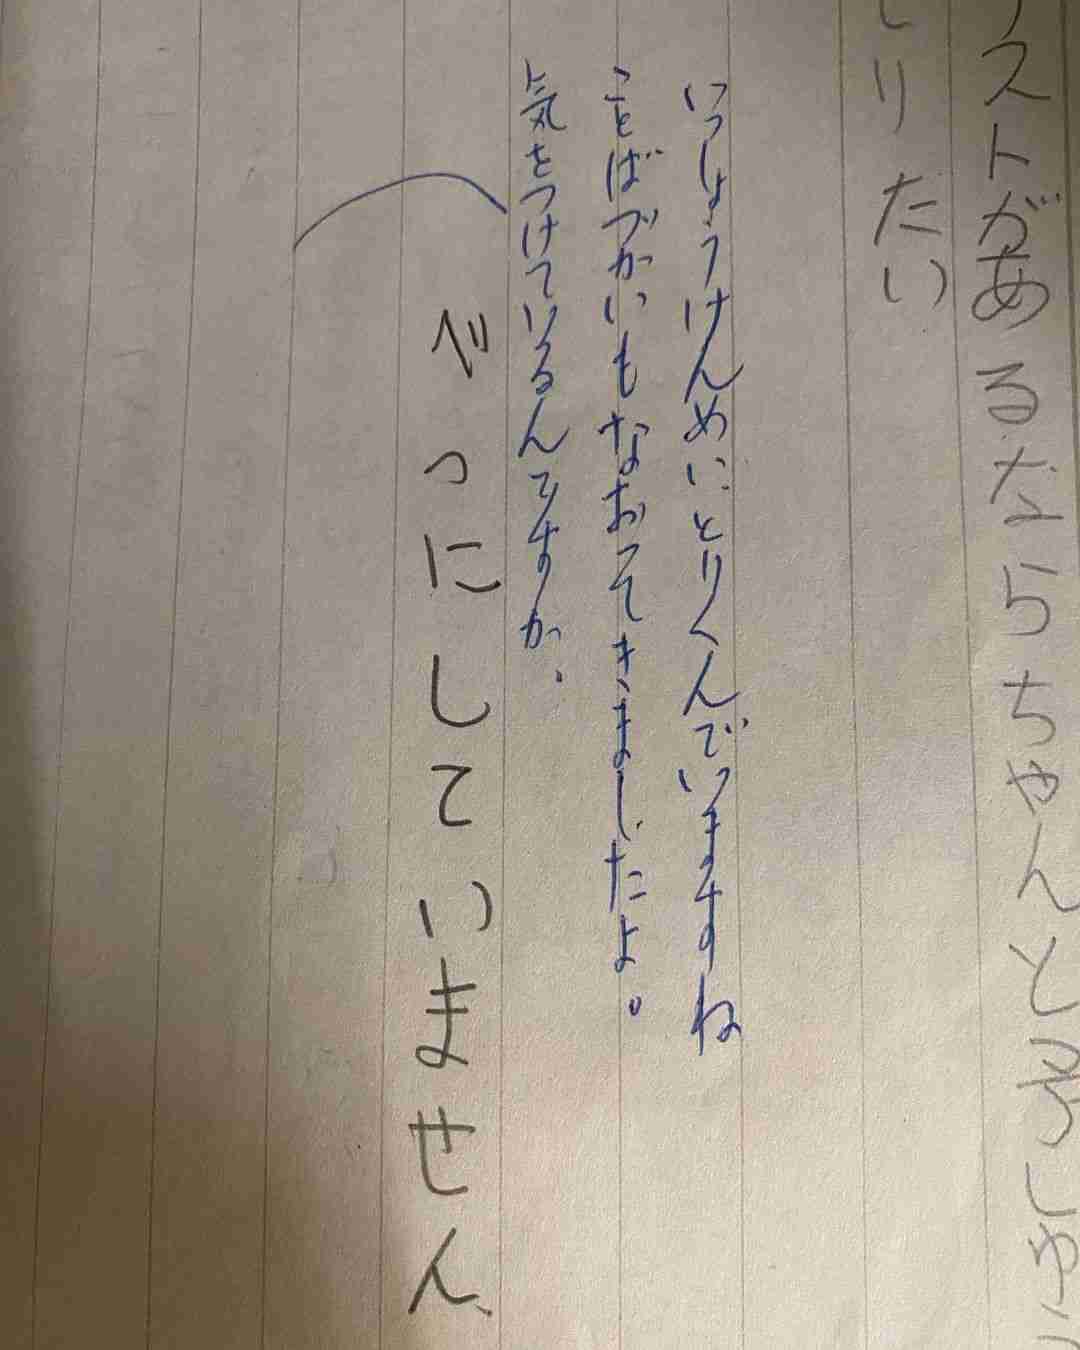 ストがあるならちゃんと
りたい
いっしょうけんめいとりくんでいますね
ことばづかいもなおってきましたよ。
気をつけているんですか。
べつにしていません